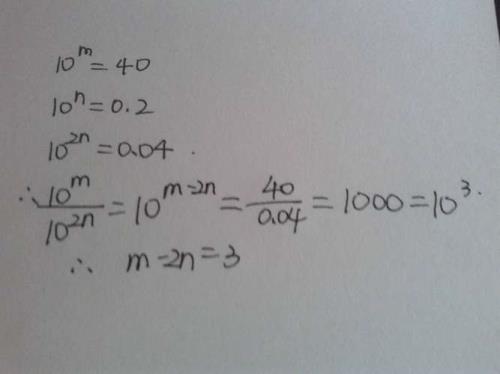 10^m = 40
10^n = 0.2
10^{2n} = 0.04.
∴ \frac{10^m}{10^{2n}} = 10^{m-2n} = \frac{40}{0.04} = 1000 = 10^3.
∴ m-2n = 3